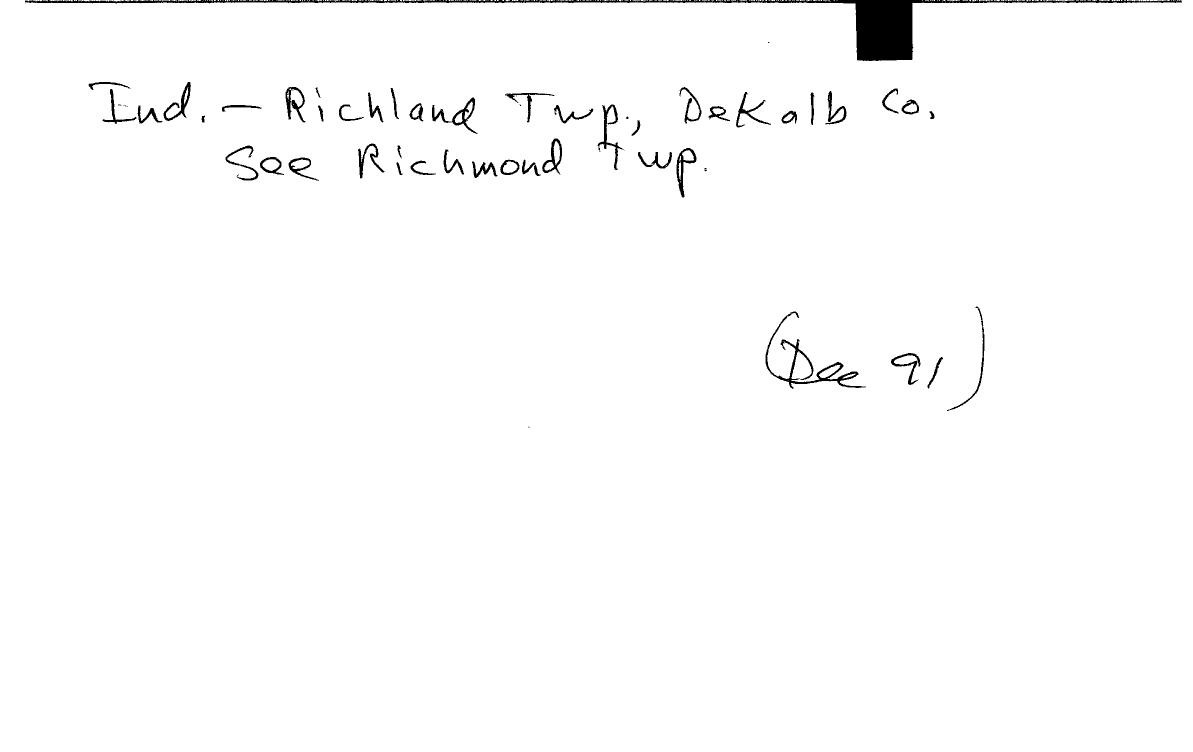 Ind. – Richland Twp., DeKalb Co.
See Richmond Twp.
(Dec 91)